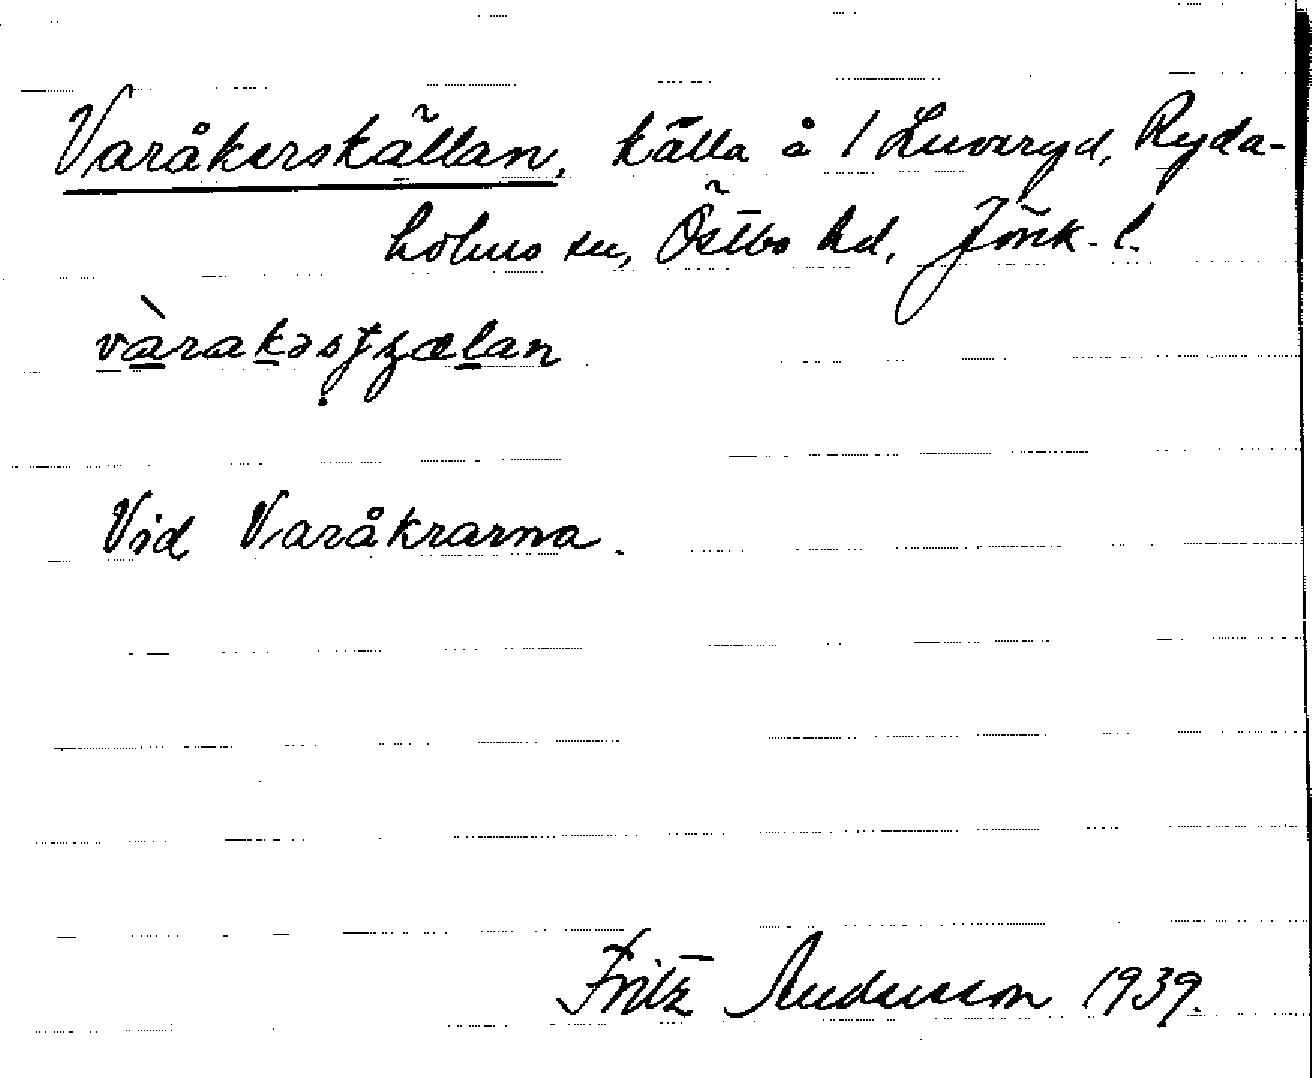 Varåkerskällan, källa å / Luvaryd, Ryda-
holms sn, Östbo hd, Jönk. l.
Vid Varåkrarna.
Fritz Andersson 1939.